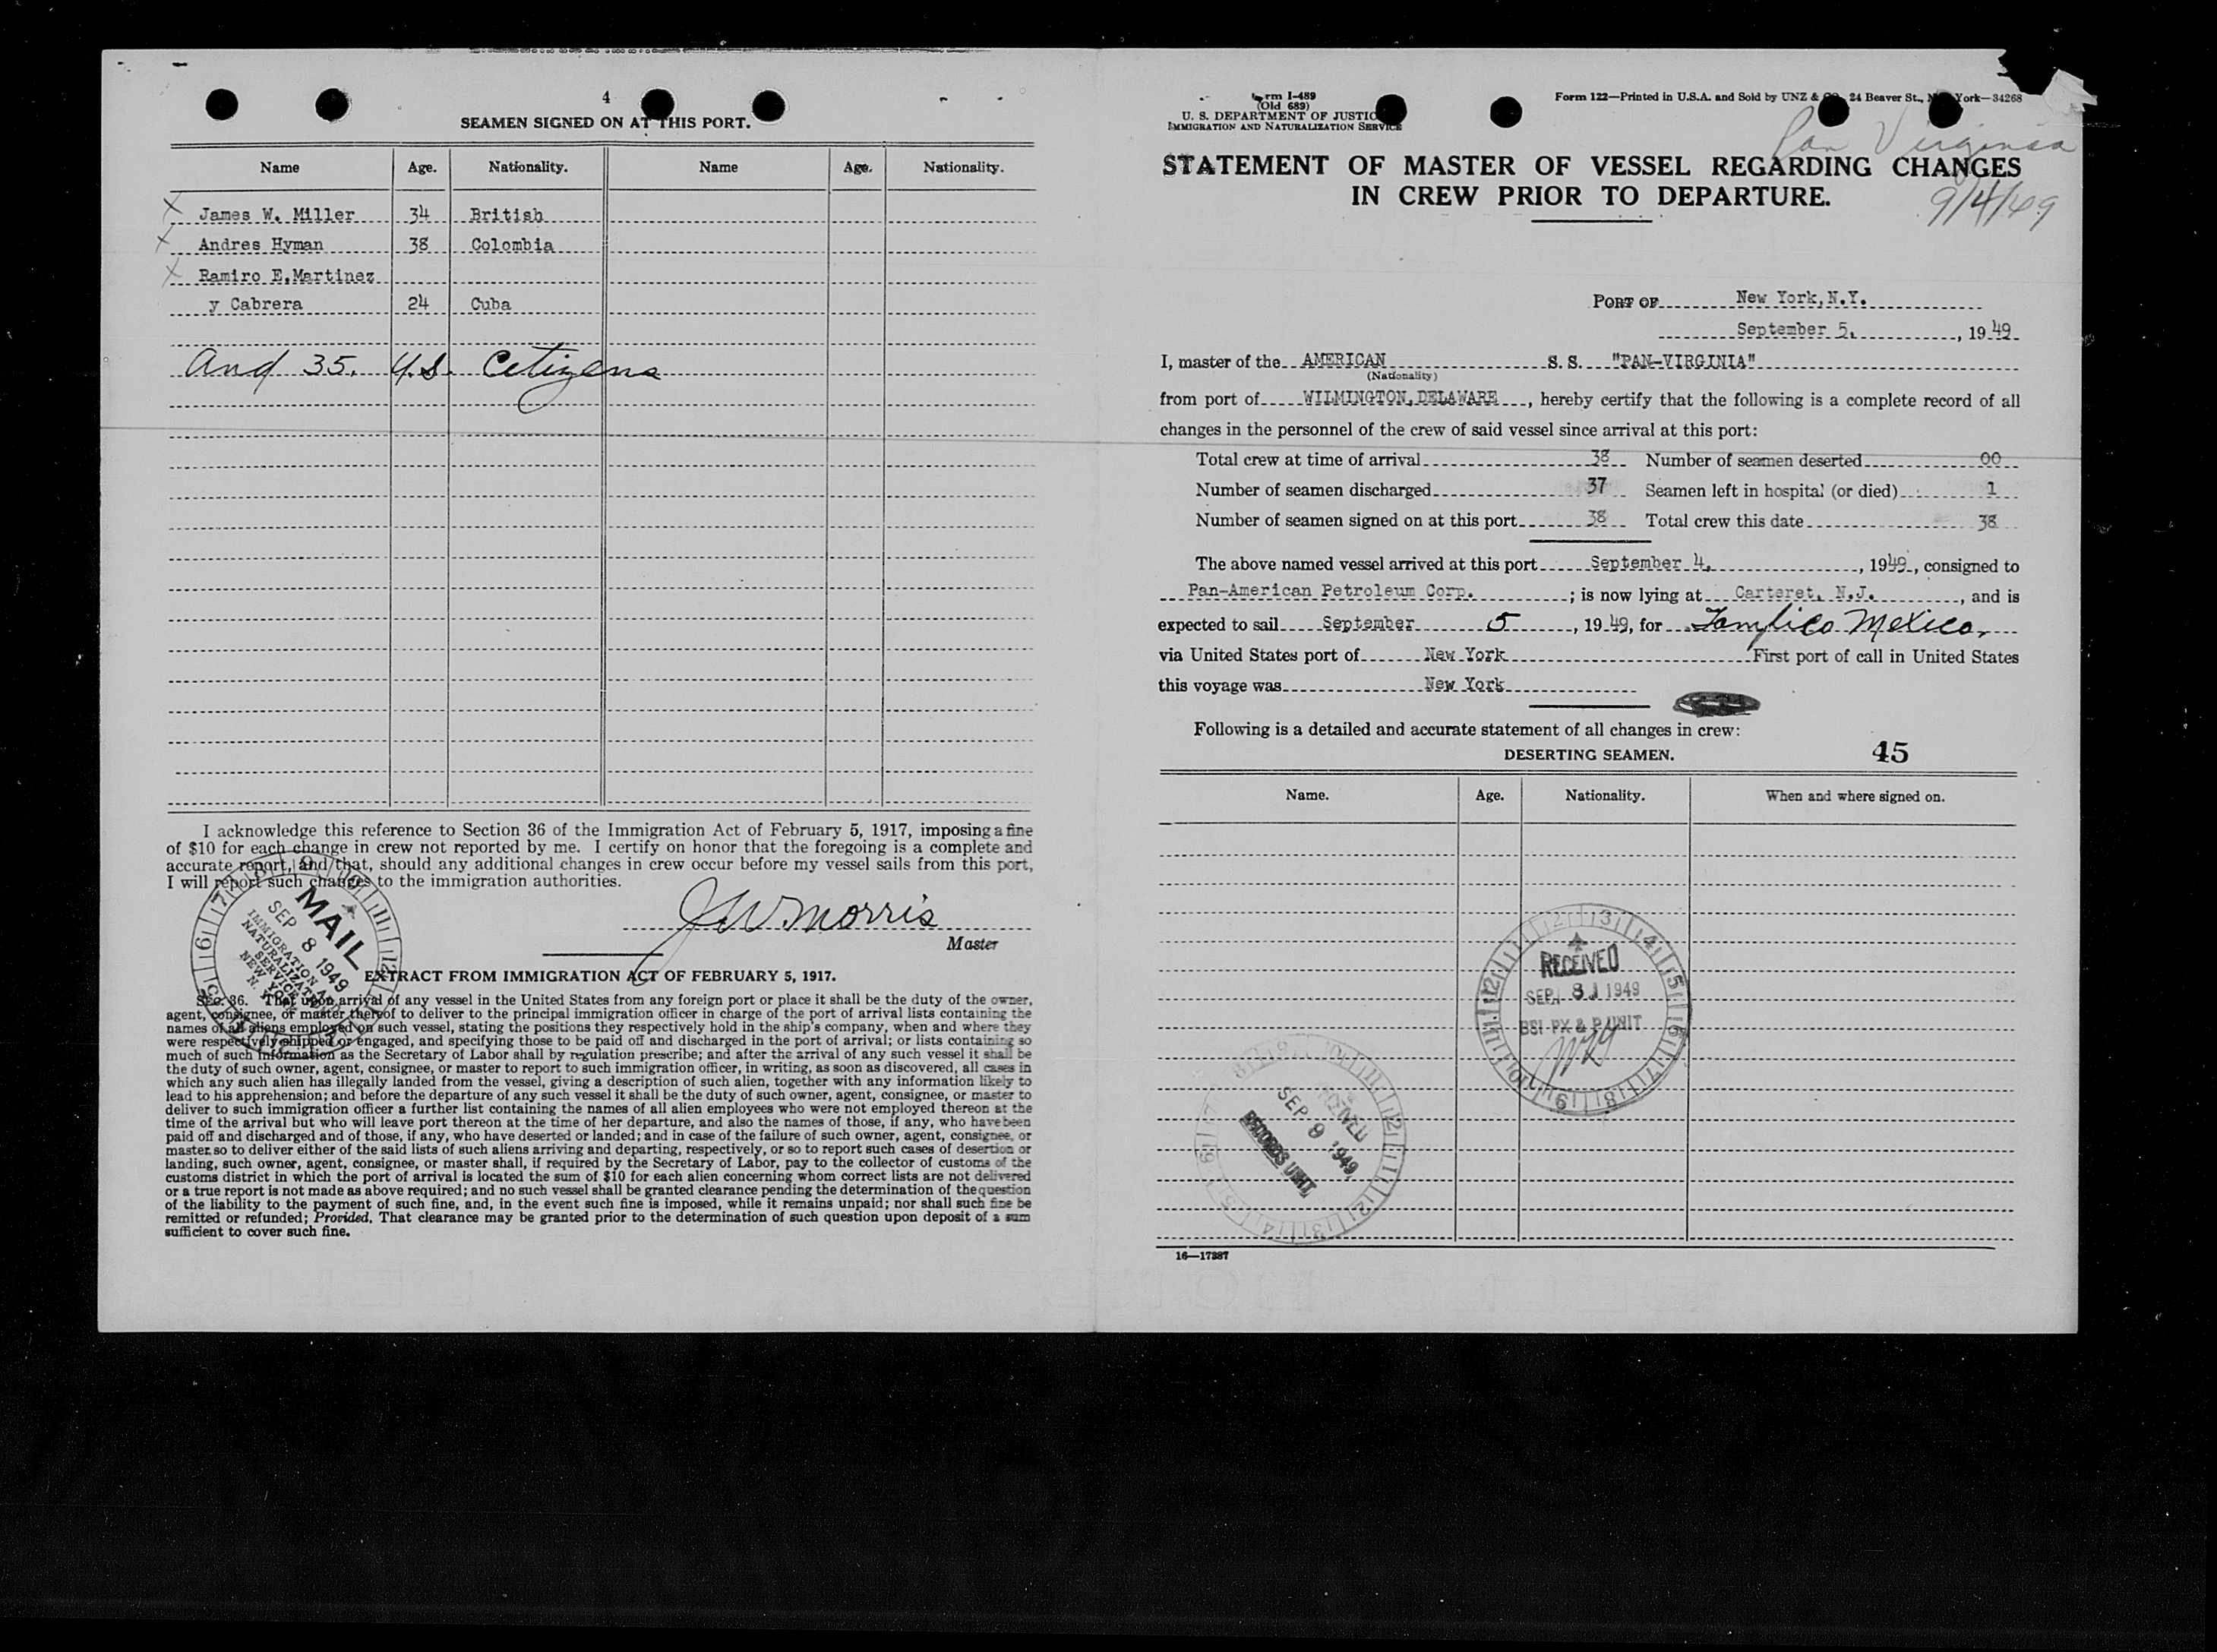 4
SEAMEN SIGNED ON AT THIS PORT.
Name Age. Nationality. Name Age. Nationality.
X James W. Miller 34 British
X Andres Hyman 38 Colombia
X Ramiro E.Martinez
y Cabrera 24 Cuba
And 35. U.S. Citizens
I acknowledge this reference to Section 36 of the Immigration Act of February 5, 1917, imposing a fine
of $10 for each change in crew not reported by me. I certify on honor that the foregoing is a complete and
accurate report, and that, should any additional changes in crew occur before my vessel sails from this port,
I will report such changes to the immigration authorities.
J W Morris
Master
MAIL
SEP 8 1949
IMMIGRATION &
NATURALIZATION
SERVICE
NEW YORK
N. Y.
EXTRACT FROM IMMIGRATION ACT OF FEBRUARY 5, 1917.
Sec. 36. That upon arrival of any vessel in the United States from any foreign port or place it shall be the duty of the owner,
agent, consignee, or master thereof to deliver to the principal immigration officer in charge of the port of arrival lists containing the
names of all aliens employed on such vessel, stating the positions they respectively hold in the ship's company, when and where they
were respectively shipped or engaged, and specifying those to be paid off and discharged in the port of arrival; or lists containing so
much of such information as the Secretary of Labor shall by regulation prescribe; and after the arrival of any such vessel it shall be
the duty of such owner, agent, consignee, or master to report to such immigration officer, in writing, as soon as discovered, all cases in
which any such alien has illegally landed from the vessel, giving a description of such alien, together with any information likely to
lead to his apprehension; and before the departure of any such vessel it shall be the duty of such owner, agent, consignee, or master to
deliver to such immigration officer a further list containing the names of all alien employees who were not employed thereon at the
time of the arrival but who will leave port thereon at the time of her departure, and also the names of those, if any, who have been
paid off and discharged and of those, if any, who have deserted or landed; and in case of the failure of such owner, agent, consignee, or
master so to deliver either of the said lists of such aliens arriving and departing, respectively, or so to report such cases of desertion or
landing, such owner, agent, consignee, or master shall, if required by the Secretary of Labor, pay to the collector of customs of the
customs district in which the port of arrival is located the sum of $10 for each alien concerning whom correct lists are not delivered
or a true report is not made as above required; and no such vessel shall be granted clearance pending the determination of the question
of the liability to the payment of such fine, and, in the event such fine is imposed, while it remains unpaid; nor shall such fine be
remitted or refunded; Provided, That clearance may be granted prior to the determination of such question upon deposit of a sum
sufficient to cover such fine.
Form I-489
(Old 689)
U. S. DEPARTMENT OF JUSTICE
IMMIGRATION AND NATURALIZATION SERVICE
Form 122—Printed in U.S.A. and Sold by UNZ & 24 Beaver St., York—34268
Pan Virginia
9/4/49
STATEMENT OF MASTER OF VESSEL REGARDING CHANGES
IN CREW PRIOR TO DEPARTURE.
PORT OF New York, N.Y.
September 5, , 19 49
I, master of the AMERICAN S. S. "PAN-VIRGINIA"
(Nationality)
from port of WILMINGTON, DELAWARE , hereby certify that the following is a complete record of all
changes in the personnel of the crew of said vessel since arrival at this port:
Total crew at time of arrival 38 Number of seamen deserted 00
Number of seamen discharged 37 Seamen left in hospital (or died) 1
Number of seamen signed on at this port 38 Total crew this date 38
The above named vessel arrived at this port September 4, , 1949, consigned to
Pan-American Petroleum Corp. ; is now lying at Carteret, N.J. , and is
expected to sail September 5 , 19 49, for Tampico Mexico,
via United States port of New York First port of call in United States
this voyage was New York
Following is a detailed and accurate statement of all changes in crew:
DESERTING SEAMEN. 45
Name. Age. Nationality. When and where signed on.
RECEIVED
SEP 8 1949
BSI PX & P UNIT
RECEIVED
SEP 9 1949
RECORDS UNIT
16—17387